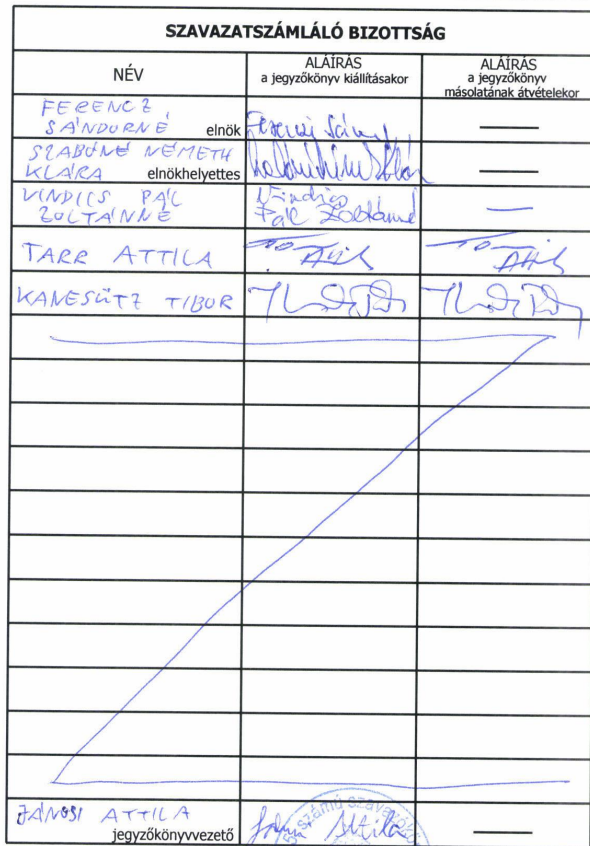 SZAVAZATSZÁMLÁLÓ BIZOTTSÁG
NÉV
ALÁÍRÁS
a jegyzőkönyv kiállításakor
ALÁÍRÁS
a jegyzőkönyv
másolatának átvételekor
FERENCZ
SÁNDORNÉ elnök
SZABÓNÉ NÉMETH
KLÁRA elnökhelyettes
VINDICS PÁL
ZOLTÁNNÉ
Vindics
Pál Zoltánné
TARR ATTILA
KANESÜTZ TIBOR
JÁNOSI ATTILA
jegyzőkönyvvezető
Attila
számú szavazó